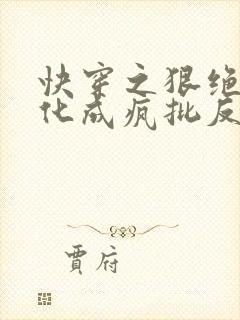 快穿之狠绝
化成疯批反
贾府